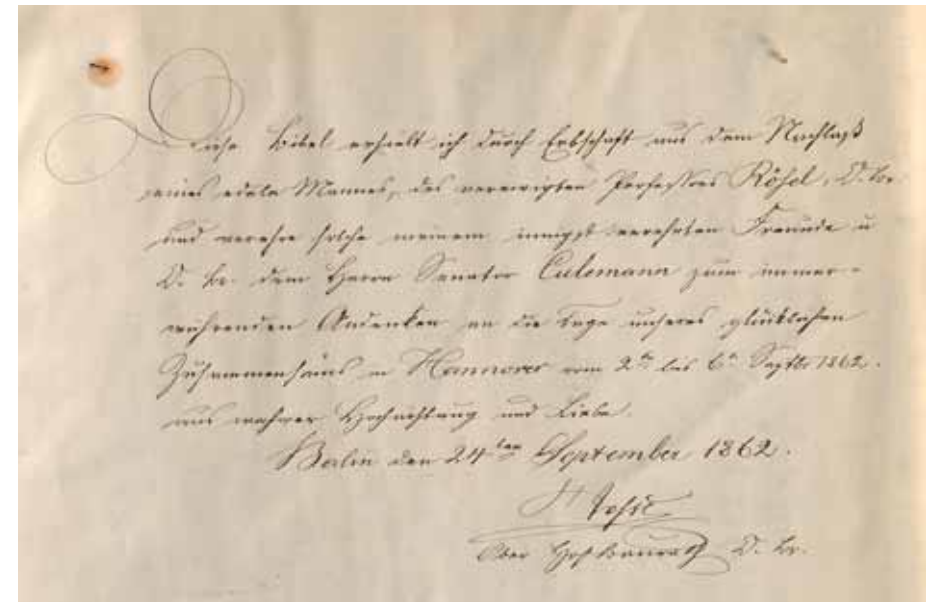 Diese Bibel erhielt ich durch Erbschaft aus dem Nachlaß
eines edeln Mannes, des verewigten Professors Rösel, D. Br.
und verehre solche meinem innigst verehrten Freunde u
D. Br. dem Herrn Senator Culemann zum immer-
währenden Andenken an die Tage unseres glücklichen
Zusammenseins in Hannover vom 2ten bis 6ten Septbr 1862.
aus wahrer Hochachtung und Liebe.
Berlin den 24ten September 1862.
Ober Hofbaurath D. Br.